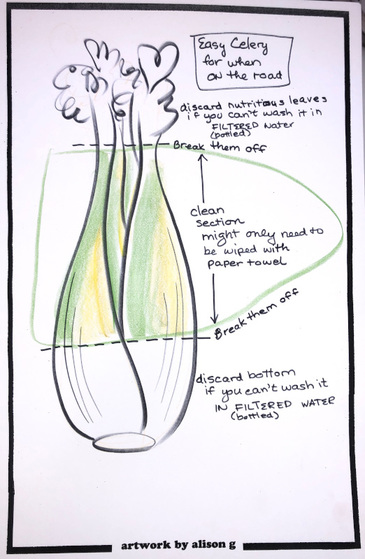 Easy Celery
for when
on the road
discard nutritious leaves
if you can't wash it in
FILTERED water
(bottled)
Break them off
clean
section
might only need to
be wiped with
paper towel
Break them off
discard bottom
if you can't wash it
IN FILTERED WATER
(bottled)
artwork by alison g